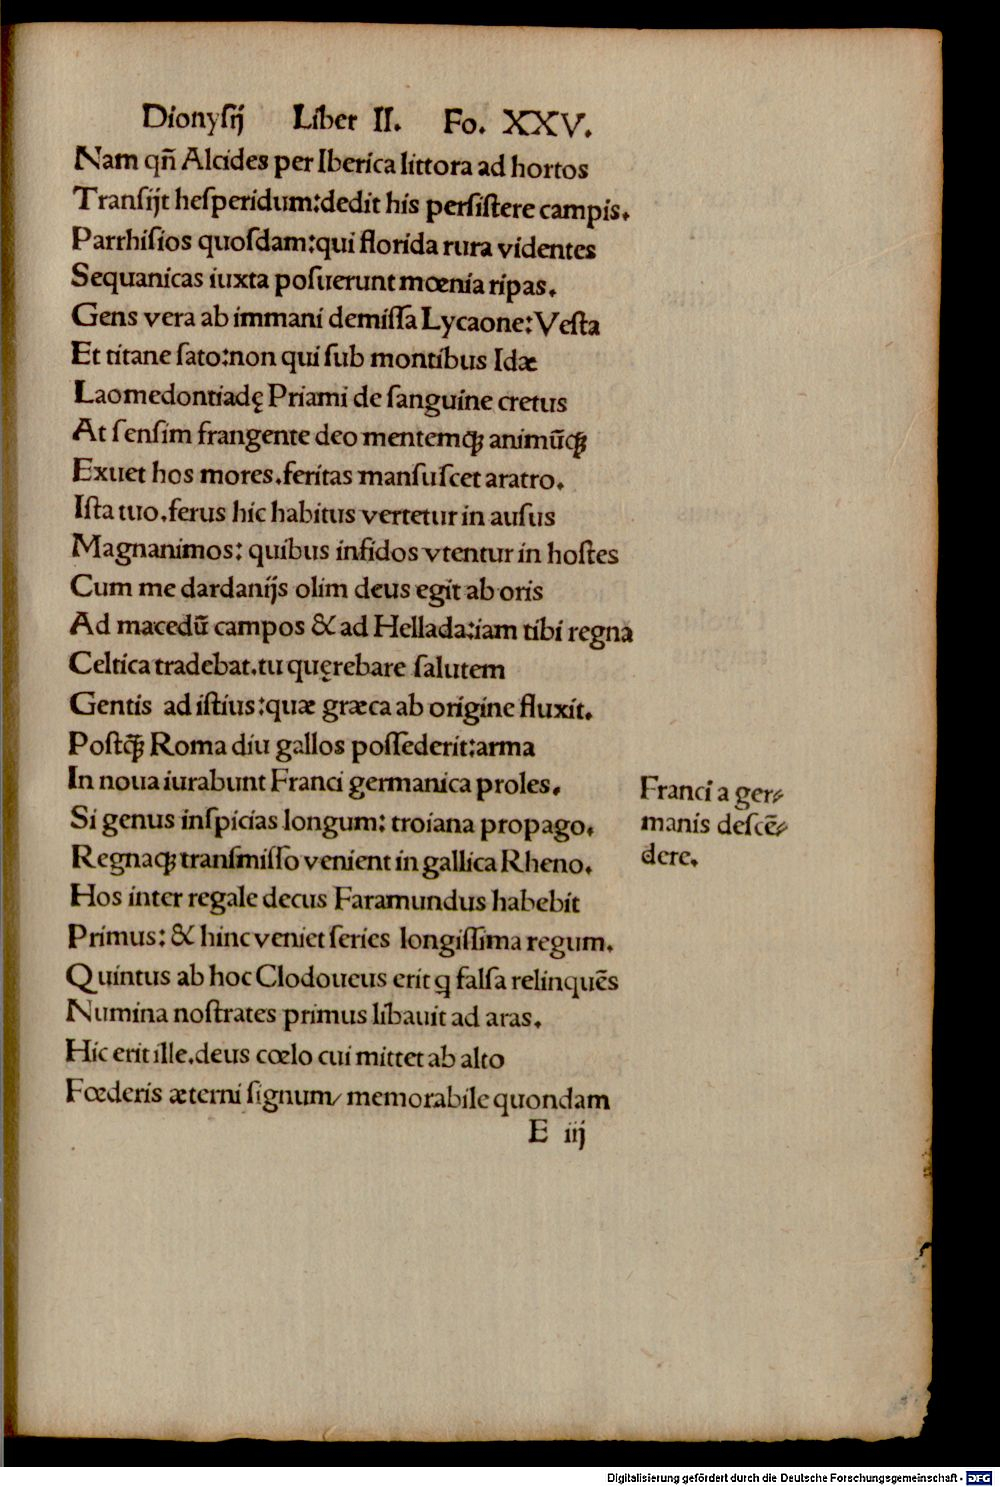 Dionyſij Liber II. Fo. XXV.
Nam qñ Alcides per Iberica littora ad hortos
Tranſijt heſperidum:dedit his perſiſtere campis.
Parrhiſios quoſdam:qui florida rura videntes
Sequanicas iuxta poſuerunt mœnia ripas.
Gens vera ab immani demiſſa Lycaone:Veſta
Et titane ſato:non qui ſub montibus Idæ
Laomedontiadę Priami de ſanguine cretus
At ſenſim frangente deo mentemqꝫ animūqꝫ
Exuet hos mores.feritas manſuſcet aratro.
Iſta tuo.ferus hic habitus vertetur in auſus
Magnanimos: quibus infidos vtentur in hoſtes
Cum me dardanijs olim deus egit ab oris
Ad macedū campos & ad Hellada:iam tibi regna
Celtica tradebat.tu quęrebare ſalutem
Gentis ad iſtius:quæ græca ab origine fluxit.
Poſtq̃ꝫ Roma diu gallos poſſederit:arma
In noua iurabunt Franci germanica proles.
Si genus inſpicias longum: troiana propago.
Regnaqꝫ tranſmiſſo venient in gallica Rheno.
Hos inter regale decus Faramundus habebit
Primus: & hinc veniet ſeries longiſſima regum.
Quintus ab hoc Clodoueus erit ꝗ falſa relinquēs
Numina noſtrates primus libauit ad aras.
Hic erit ille.deus cœlo cui mittet ab alto
Fœderis æterni ſignum/ memorabile quondam
E iij
Franci a ger⸗
manis deſcē⸗
dere.
Digitalisierung gefördert durch die Deutsche Forschungsgemeinschaft - DFG